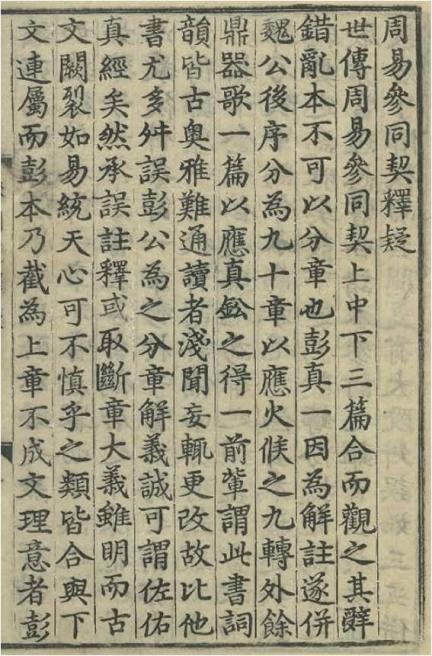 周易參同契釋疑
世傳周易參同契上中下三篇合而觀之其辭
錯亂本不可以分章也彭真一因為解註遂併
魏公後序分為九十章以應火候之九轉外餘
鼎器歌一篇以應真鈆之得一前輩謂此書詞
韻皆古奧雅難通讀者淺聞妄輒更改故比他
書尤多舛誤彭公為之分章解義誠可謂佐佑
真經矣然承誤註釋或取斷章大義雖明而古
文闕裂如易統天心可不慎乎之類皆合與下
文連屬而彭本乃截為上章不成文理意者彭